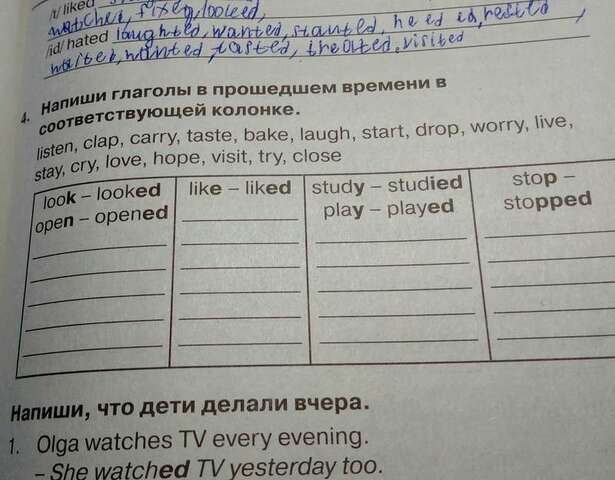 /t/ liked
watched, fixed, looked,
/id/ hated laughted, wanted, started, needed, rested,
tasted, visited
4. Напиши глаголы в прошедшем времени в
соответствующей колонке.
listen, clap, carry, taste, bake, laugh, start, drop, worry, live,
stay, cry, love, hope, visit, try, close
look – looked
open – opened
like – liked
study – studied
play – played
stop –
stopped
Напиши, что дети делали вчера.
1. Olga watches TV every evening.
– She watched TV yesterday too.